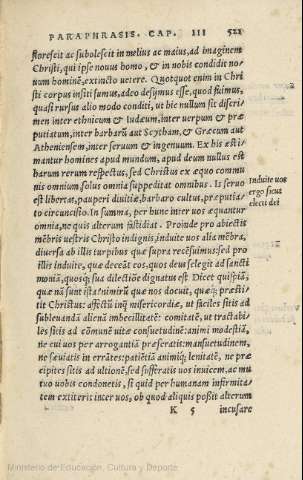 PARAPHRASIS. CAP. III 521
florescit ac subolescit in melius ac maius, ad imaginem
Christi, qui ipse nouus homo, & in nobis condidit no-
uum hominē, extincto uetere. Quotquot enim in Chri
sti corpus insiti sumus, adeo desijmus esse, quod fuimus,
quasi rursus alio modo conditi, ut hic nullum sit discri-
men inter ethnicum & Iudæum, inter uerpum & præ
putiatum, inter barbarū aut Scytham, & Græcum aut
Atheniensem, inter seruum & ingenuum. Ex his æsti-
mantur homines apud mundum, apud deum nullus est
harum rerum respectus, sed Christus ex æquo commu
nis omnium, solus omnia suppeditat omnibus. Is seruo
est libertas, pauperi diuitiæ, barbaro cultus, præputia-
to circuncisio. In summa, per hunc inter uos æquantur
omnia, ne quis alterum fastidiat. Proinde pro abiectis
mēbris uestris Christo indignis, induite uos alia mēbra,
diuersa ab illis turpibus quæ supra recēsuimus: sed pro
illis induite, quæ decēat eos, quos deus selegit ad sancti
moniā, quosq; sua dilectiōe dignatus est. Dicet quispiā,
quæ nā sunt ista? nimirū quæ nos docuit, quæq; præsti-
tit Christus: affectū inq̄ misericordiæ, ut faciles sitis ad
subleuandā alienā imbecillitatē: comitatē, ut tractabi-
les sitis ad cōmunē uitæ cōsuetudinē: animi modestiā,
ne cui uos per arrogantiā præferatis: mansuetudinem,
ne sæuiatis in errātes: patiētiā animiq; lenitatē, ne præ
cipites sitis ad ultionē, sed sufferatis uos inuicem, ac mu
tuo uobis condonetis, si quid per humanam infirmita-
tem extiterit inter uos, ob quod aliquis possit alterum
K 5 incusare
Induite uos
ergo sicut
electi dei
Ministerio de Educación, Cultura y Deporte